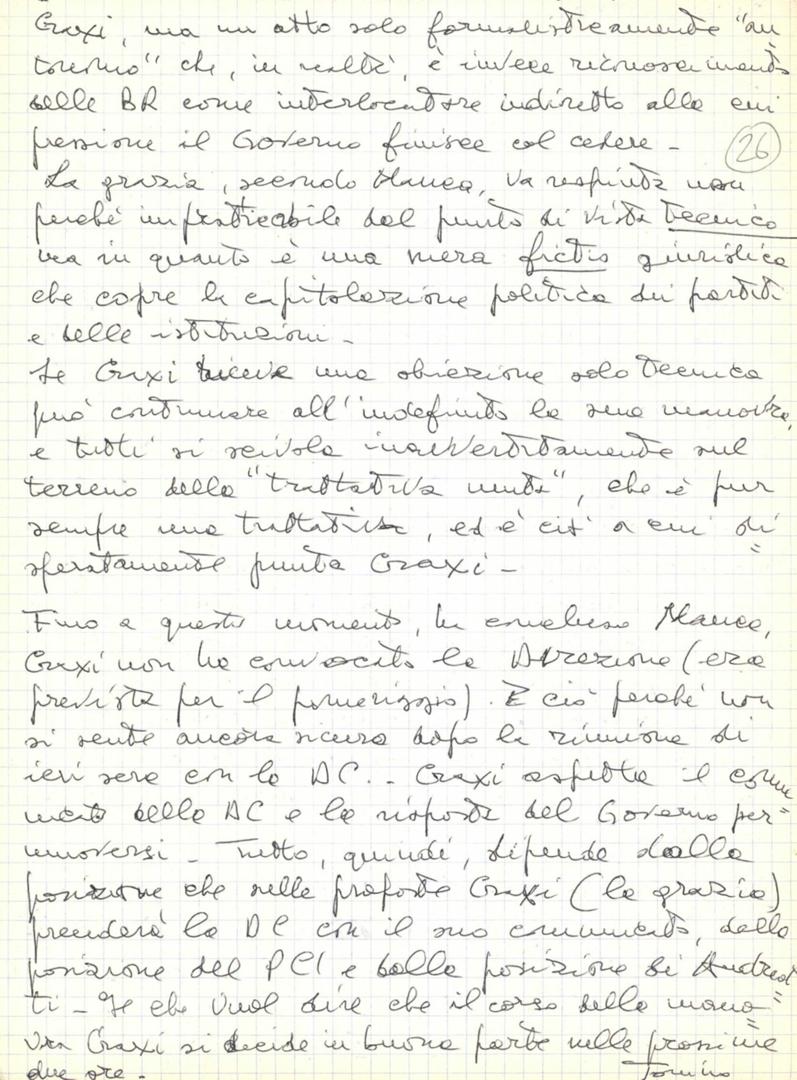 Craxi, ma un atto solo formalisticamente "au
tonomo" che, in realtà, è invece riconoscimento
delle BR come interlocutore indiretto alla cui
pressione il Governo finisce col cedere -
26
La grazia, secondo Manca, va respinta non
perché impraticabile dal punto di vista tecnico
ma in quanto è una mera fictio giuridica
che copre la capitolazione politica dei partiti
e delle istituzioni -
Se Craxi riceve una obiezione solo tecnica
può continuare all'indefinito la sua manovra,
e tutti si scivola inavvertitamente sul
terreno della "trattativa muta", che è pur
sempre una trattativa, ed è ciò a cui di=
speratamente punta Craxi -
Fino a questo momento, ha concluso Manca,
Craxi non ha convocato la Direzione (era
prevista per il pomeriggio). E ciò perché non
si sente ancora sicuro dopo la riunione di
ieri sera con la DC. - Craxi aspetta il comu
nicato della DC e la risposta del Governo per=
muoversi - Tutto, quindi, dipende dalla
posizione che nella proposta Craxi (la grazia)
prenderà la DC con il suo comunicato, dalla
posizione del PCI e dalla posizione di Andreot
ti - Il che vuol dire che il corso della mano=
vra Craxi si decide in buona parte nelle prossime
due ore - Tonino